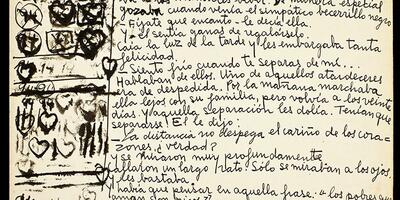 gozaba cuando venía el simpático becerrillo negro
- Fíjate que encanto - le decía ella.
Y él sentía ganas de regalárselo.
Caía la luz de la tarde y les embargaba tanta
felicidad.
- Siento frío cuando te separas de mí...
Hablaban de ellos. Uno de aquellos atardeceres
era de despedida. Por la mañana marchaba
ella lejos con su familia, pero volvía a los veinte
días. Y aquella separación les dolía. Tenían que
separarse! El le dijo:
- La distancia no despega el cariño de los cora-
zones ¿verdad?
y se miraron muy profundamente
callaron un largo rato. Solo se miraban a los ojos,
y les bastaba.
había que pensar en aquella frase: "los pobres que